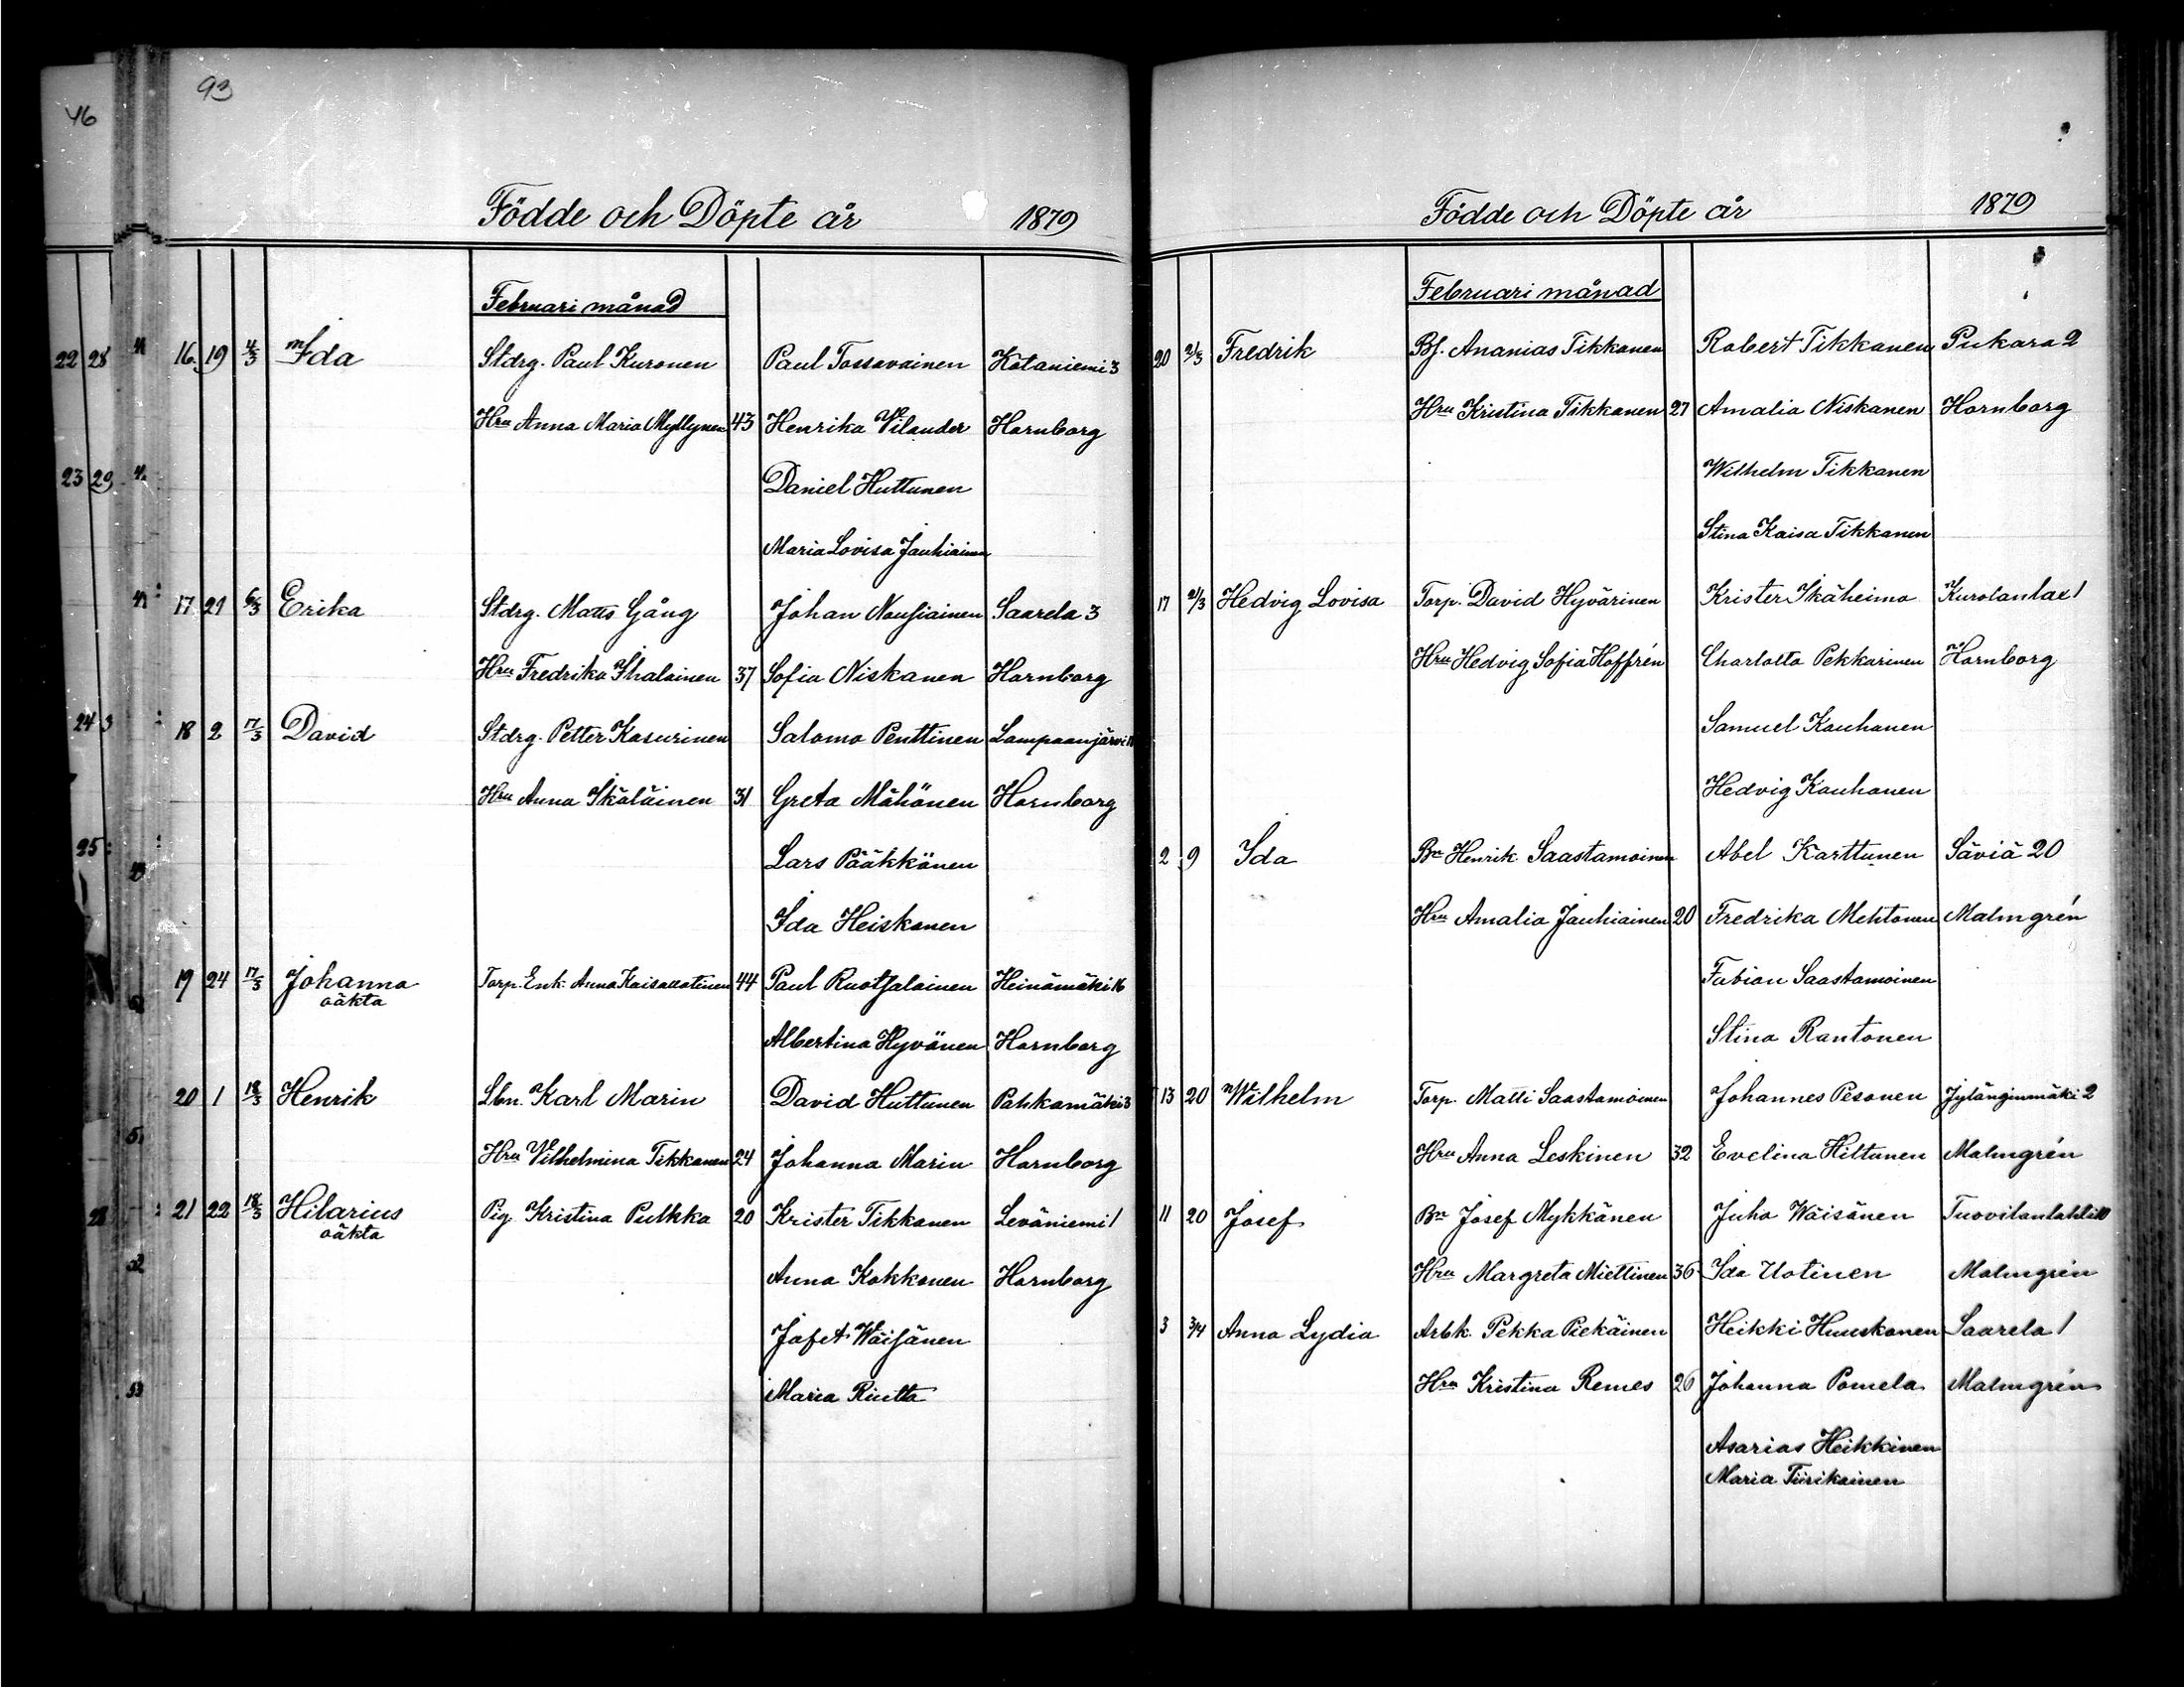 93
46
Födde och Döpte år 1879
Februari månad
22 28
16 19 4/3 Ida Stdrg. Paul Kuronen Paul Tossavainen Kotaniemi 3
Hru Anna Maria Myllynen 43 Henrika Vilander Hornborg
23 29
Daniel Huttunen
Maria Lovisa Jauhiainen
17 21 6/3 Erika Stdrg. Matts Gång Johan Nousiainen Saarela 3
Hru Fredrika Ihalainen 37 Sofia Niskanen Hornborg
24 3
18 2 17/3 David Stdrg. Petter Kasurinen Salomo Penttinen Lampaanjärvi
Hru Anna Ikäläinen 31 Greta Mähönen Hornborg
25
Lars Pääkkönen
Ida Heiskanen
19 24 17/3 Johanna Torp. Enk. Anna Kaisa 44 Paul Ruotsalainen Heinämäki 16
oäkta
Albertina Hyvönen Hornborg
20 1 18/3 Henrik Lbn. Karl Marin David Huttunen Pahkamäki 3
Hru Vilhelmina Tikkanen 24 Johanna Marin Hornborg
21 22 18/3 Hilarius Pig. Kristina Pulkka 20 Krister Tikkanen Leväniemi 1
oäkta
Anna Kokkonen Hornborg
Jafet Wäisänen
Maria Riutta
Födde och Döpte år 1879
Februari månad
20 21/3 Fredrik Bf. Ananias Tikkanen Robert Tikkanen Pukara 2
Hru Kristina Tikkanen 27 Amalia Niskanen Hornborg
Wilhelm Tikkanen
Stina Kaisa Tikkanen
17 21/3 Hedvig Lovisa Torp. David Hyvärinen Krister Ikäheimo Kurolanlax 1
Hru Hedvig Sofia Hoffrén Charlotta Pekkarinen Hornborg
Samuel Kauhanen
Hedvig Kauhanen
2 9 Ida Bn Henrik Saastamoinen Abel Karttunen Säviä 20
Hru Amalia Jauhiainen 20 Fredrika Mehtonen Malmgrén
Fabian Saastamoinen
Stina Rantonen
13 20 Wilhelm Torp. Matti Saastamoinen Johannes Pesonen Jylänginmäki 2
Hru Anna Leskinen 32 Evelina Hiltunen Malmgrén
11 20 Josef Bn Josef Mykkänen Juho Wäisänen Tuovilanlahti
Hru Margreta Miettinen 36 Ida Uotinen Malmgrén
3 3/4 Anna Lydia Arbk. Pekka Piekäinen Heikki Huuskonen Saarela 1
Hru Kristina Remes 26 Johanna Pomela Malmgrén
Asarias Heikkinen
Maria Tiirikainen